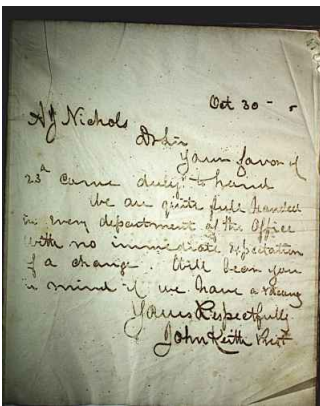 Oct 30 - 5
A J Nichols
D Sir
Your favor of
23d came duly to hand
We are quite full handed
in every department of the Office
with no immediate expectation
of a change. Will bear you
in mind if we have a vacancy
Yours Respectfully
John Keith Prest